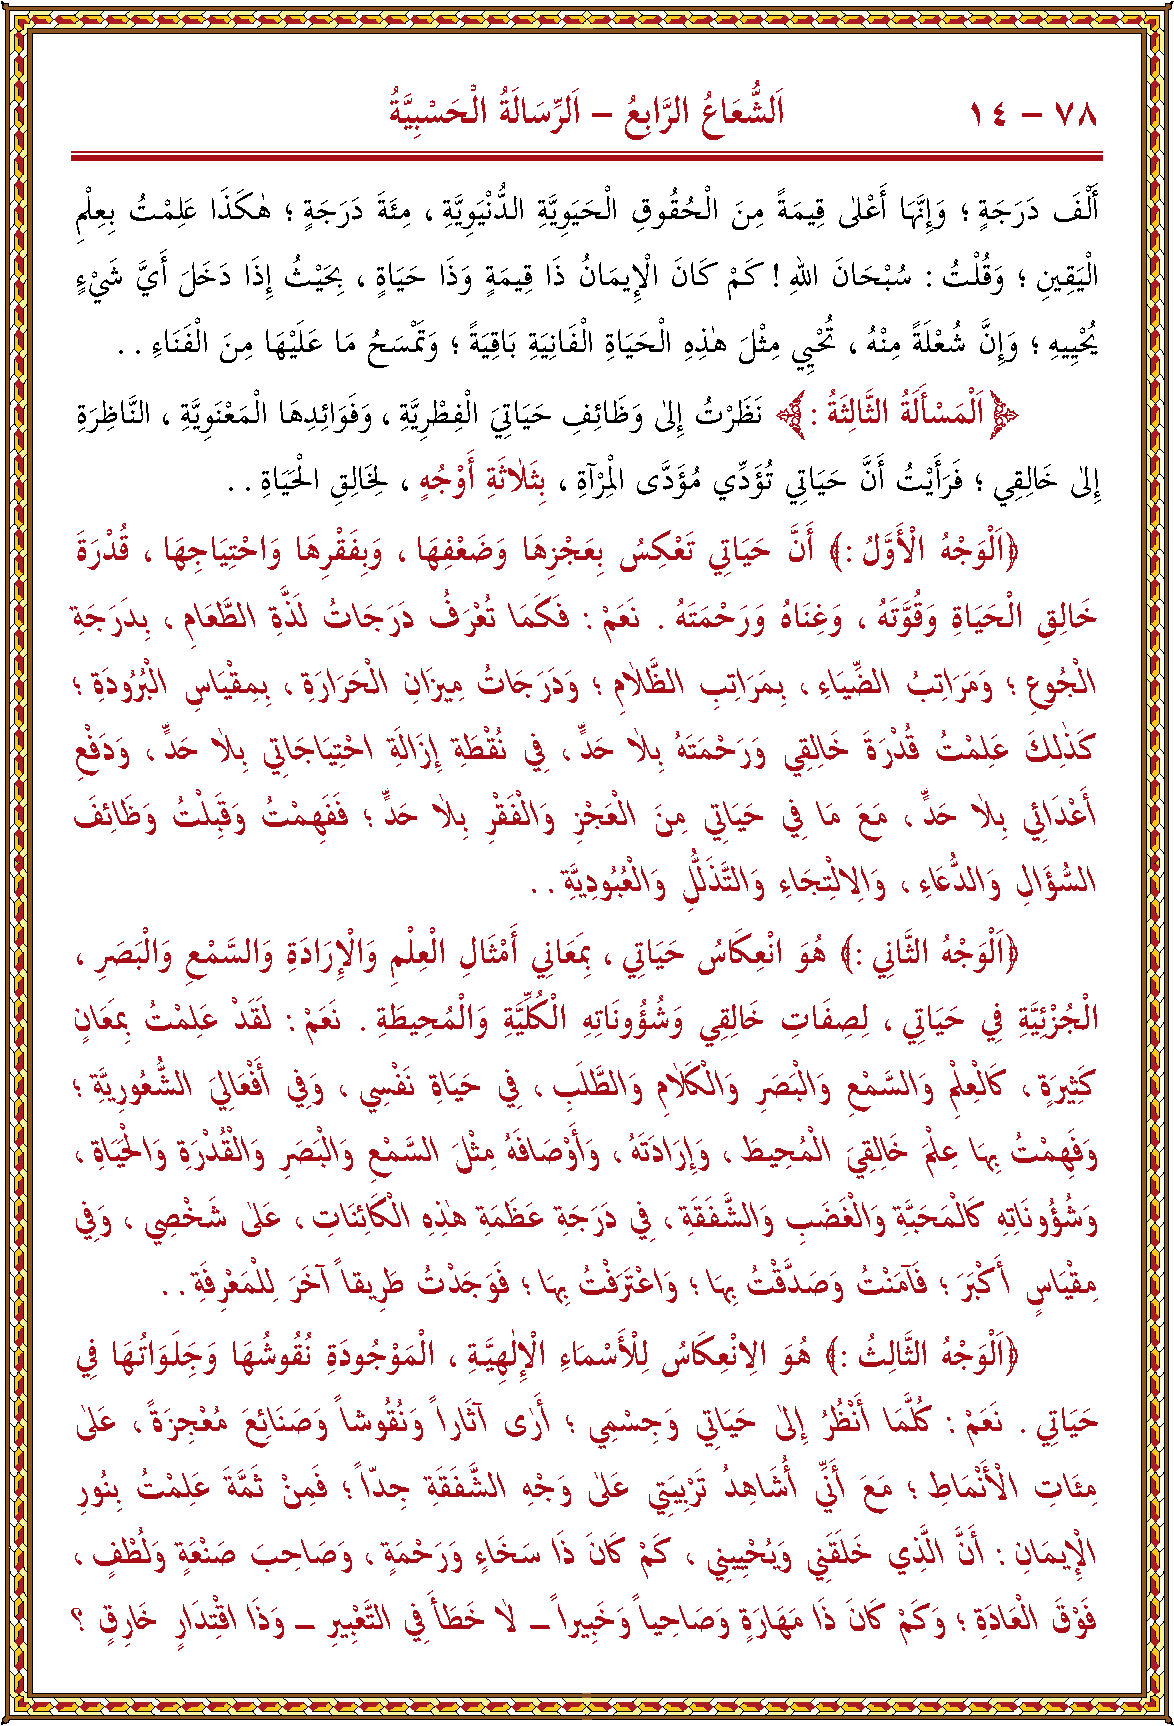 ٧٨ – ١٤ اَلشُّعَاعُ الرَّابِعُ – اَلرِّسَالَةُ الْحَسْبِيَّةُ
أَلْفَ دَرَجَةٍ ؛ وَإِنَّهَا أَعْلٰى قِيمَةً مِنَ الْحُقُوقِ الْحَيَوِيَّةِ الدُّنْيَوِيَّةِ ، مِئَةَ دَرَجَةٍ ؛ هٰكَذَا عَلِمْتُ بِعِلْمِ
الْيَقِينِ ؛ وَقُلْتُ : سُبْحَانَ اللهِ ! كَمْ كَانَ الْإِيمَانُ ذَا قِيمَةٍ وَذَا حَيَاةٍ ، بِحَيْثُ إِذَا دَخَلَ أَيَّ شَيْءٍ
يُحْيِيهِ ؛ وَإِنَّ شُعْلَةً مِنْهُ ، تُحْيِي مِثْلَ هٰذِهِ الْحَيَاةِ الْفَانِيَةِ بَاقِيَةً ؛ وَتَمْسَحُ مَا عَلَيْهَا مِنَ الْفَنَاءِ . .
﴿اَلْمَسْأَلَةُ الثَّالِثَةُ :﴾ نَظَرْتُ إِلٰى وَظَائِفِ حَيَاتِيَ الْفِطْرِيَّةِ ، وَفَوَائِدِهَا الْمَعْنَوِيَّةِ ، النَّاظِرَةِ
إِلٰى خَالِقِي ؛ فَرَأَيْتُ أَنَّ حَيَاتِي تُؤَدِّي مُؤَدَّى الْمِرْآةِ ، بِثَلَاثَةِ أَوْجُهٍ ، لِخَالِقِ الْحَيَاةِ . .
﴿اَلْوَجْهُ الْأَوَّلُ :﴾ أَنَّ حَيَاتِي تَعْكِسُ بِعَجْزِهَا وَضَعْفِهَا ، وَبِفَقْرِهَا وَاحْتِيَاجِهَا ، قُدْرَةَ
خَالِقِ الْحَيَاةِ وَقُوَّتَهُ ، وَغِنَاهُ وَرَحْمَتَهُ . نَعَمْ : فَكَمَا تُعْرَفُ دَرَجَاتُ لَذَّةِ الطَّعَامِ ، بِدَرَجَةِ
الْجُوعِ ؛ وَمَرَاتِبُ الضِّيَاءِ ، بِمَرَاتِبِ الظَّلَامِ ؛ وَدَرَجَاتُ مِيزَانِ الْحَرَارَةِ ، بِمِقْيَاسِ الْبُرُودَةِ ؛
كَذٰلِكَ عَلِمْتُ قُدْرَةَ خَالِقِي وَرَحْمَتَهُ بِلَا حَدٍّ ، فِي نُقْطَةِ إِزَالَةِ احْتِيَاجَاتِي بِلَا حَدٍّ ، وَدَفْعِ
أَعْدَائِي بِلَا حَدٍّ ، مَعَ مَا فِي حَيَاتِي مِنَ الْعَجْزِ وَالْفَقْرِ بِلَا حَدٍّ ؛ فَفَهِمْتُ وَقَبِلْتُ وَظَائِفَ
السُّؤَالِ وَالدُّعَاءِ ، وَالِالْتِجَاءِ وَالتَّذَلُّلِ وَالْعُبُودِيَّةِ . .
﴿اَلْوَجْهُ الثَّانِي :﴾ هُوَ انْعِكَاسُ حَيَاتِي ، بِمَعَانِي أَمْثَالِ الْعِلْمِ وَالْإِرَادَةِ وَالسَّمْعِ وَالْبَصَرِ ،
الْجُزْئِيَّةِ فِي حَيَاتِي ، لِصِفَاتِ خَالِقِي وَشُؤُونَاتِهِ الْكُلِّيَّةِ وَالْمُحِيطَةِ . نَعَمْ : لَقَدْ عَلِمْتُ بِمَعَانٍ
كَثِيرَةٍ ، كَالْعِلْمِ وَالسَّمْعِ وَالْبَصَرِ وَالْكَلَامِ وَالطَّلَبِ ، فِي حَيَاةِ نَفْسِي ، وَفِي أَفْعَالِيَ الشُّعُورِيَّةِ ؛
وَفَهِمْتُ بِهَا عِلْمَ خَالِقِيَ الْمُحِيطَ ، وَإِرَادَتَهُ ، وَأَوْصَافَهُ مِثْلَ السَّمْعِ وَالْبَصَرِ وَالْقُدْرَةِ وَالْحَيَاةِ ،
وَشُؤُونَاتِهِ كَالْمَحَبَّةِ وَالْغَضَبِ وَالشَّفَقَةِ ، فِي دَرَجَةِ عَظَمَةِ هٰذِهِ الْكَائِنَاتِ ، عَلَى شَخْصِي ، وَفِي
مِقْيَاسٍ أَكْبَرَ ؛ فَآمَنْتُ وَصَدَّقْتُ بِهَا ؛ وَاعْتَرَفْتُ بِهَا ؛ فَوَجَدْتُ طَرِيقاً آخَرَ لِلْمَعْرِفَةِ . .
﴿اَلْوَجْهُ الثَّالِثُ :﴾ هُوَ الِانْعِكَاسُ لِلْأَسْمَاءِ الْإِلٰهِيَّةِ ، الْمَوْجُودَةِ نُقُوشُهَا وَجَلَوَاتُهَا فِي
حَيَاتِي . نَعَمْ : كُلَّمَا أَنْظُرُ إِلٰى حَيَاتِي وَجِسْمِي ؛ أَرٰى آثَاراً وَنُقُوشاً وَصَنَائِعَ مُعْجِزَةً ، عَلٰى
مِئَاتِ الْأَنْمَاطِ ؛ مَعَ أَنِّي أُشَاهِدُ تَرْبِيَتِي عَلٰى وَجْهِ الشَّفَقَةِ جِدّاً ؛ فَمِنْ ثَمَّةَ عَلِمْتُ بِنُورِ
الْإِيمَانِ : أَنَّ الَّذِي خَلَقَنِي وَيُحْيِينِي ، كَمْ كَانَ ذَا سَخَاءٍ وَرَحْمَةٍ ، وَصَاحِبَ صَنْعَةٍ وَلُطْفٍ ،
فَوْقَ الْعَادَةِ ؛ وَكَمْ كَانَ ذَا مَهَارَةٍ وَصَاحِياً وَخَبِيراً – لَا خَطَأَ فِي التَّعْبِيرِ – وَذَا اقْتِدَارٍ خَارِقٍ ؟